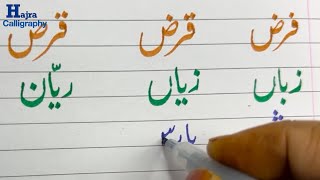 Hajra
Calligraphy
فرض قرض قرض
زباں زیاں ریّان